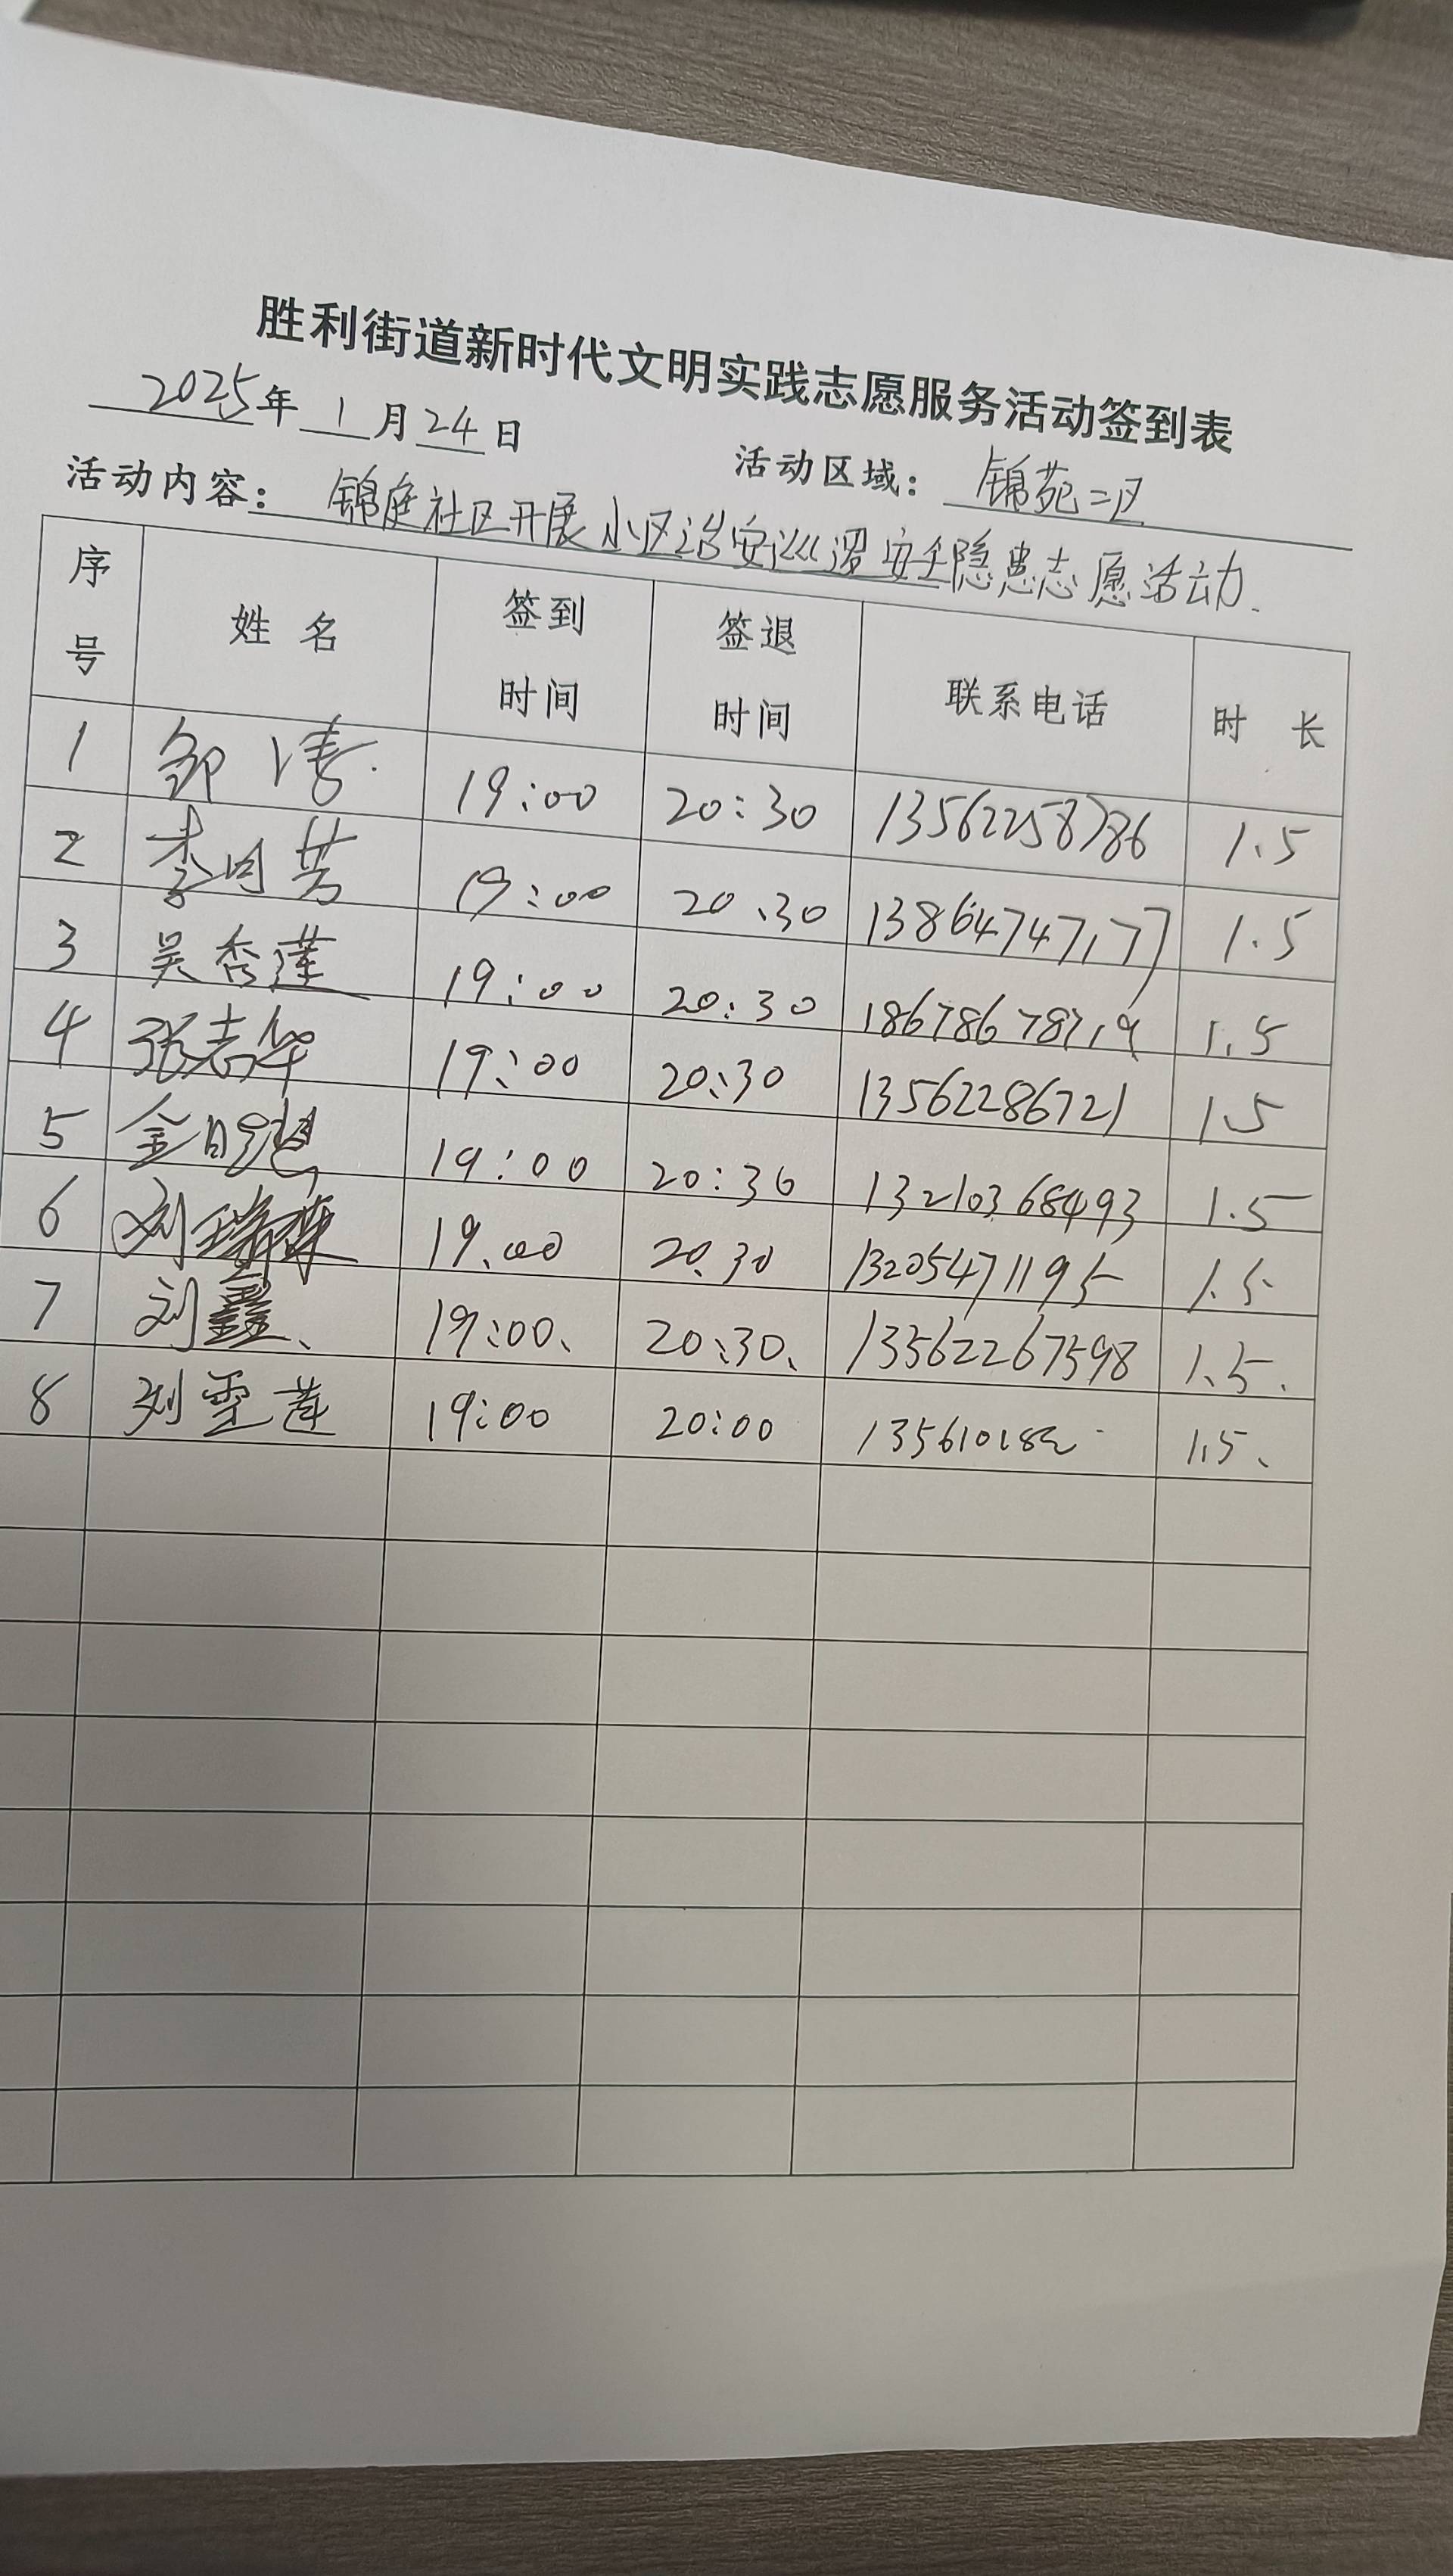 胜利街道新时代文明实践志愿服务活动签到表
2025年 1 月 24 日 活动区域：锦苑二区
活动内容：锦庭社区开展小区治安巡逻安全隐患志愿活动.
序号 姓名 签到时间 签退时间 联系电话 时 长
1 19:00 20:30 13562258786 1.5
2 李月芳 19:00 20:30 13864747177 1.5
3 吴秀莲 19:00 20:30 18678678719 1.5
4 张志华 19:00 20:30 13562286721 1.5
5 19:00 20:30 13210368493 1.5
6 刘瑞 19:00 20:30 13205471195 1.5
7 刘鑫、 19:00、 20:30、 13562267598 1.5、
8 刘雪莲 19:00 20:00 1.5、